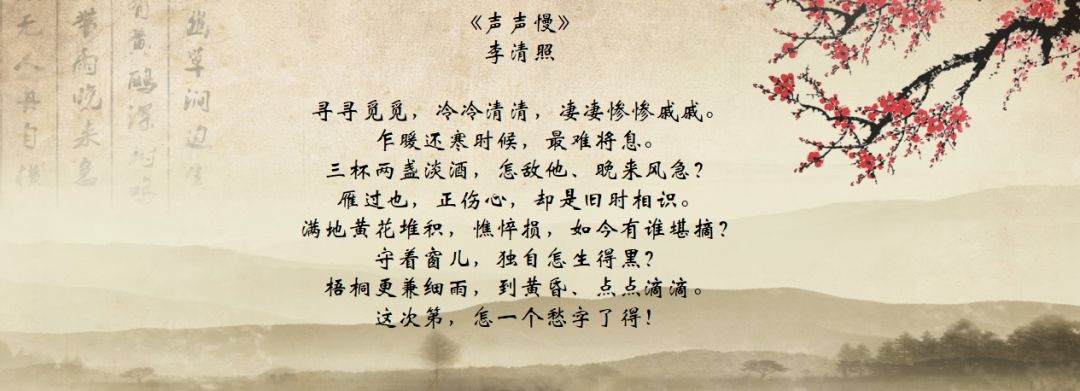 《声声慢》
李清照
寻寻觅觅，冷冷清清，凄凄惨惨戚戚。
乍暖还寒时候，最难将息。
三杯两盏淡酒，怎敌他、晚来风急？
雁过也，正伤心，却是旧时相识。
满地黄花堆积，憔悴损，如今有谁堪摘？
守着窗儿，独自怎生得黑？
梧桐更兼细雨，到黄昏、点点滴滴。
这次第，怎一个愁字了得！
幽草涧边生
黄鸝深
雨晚来急
无人舟自横